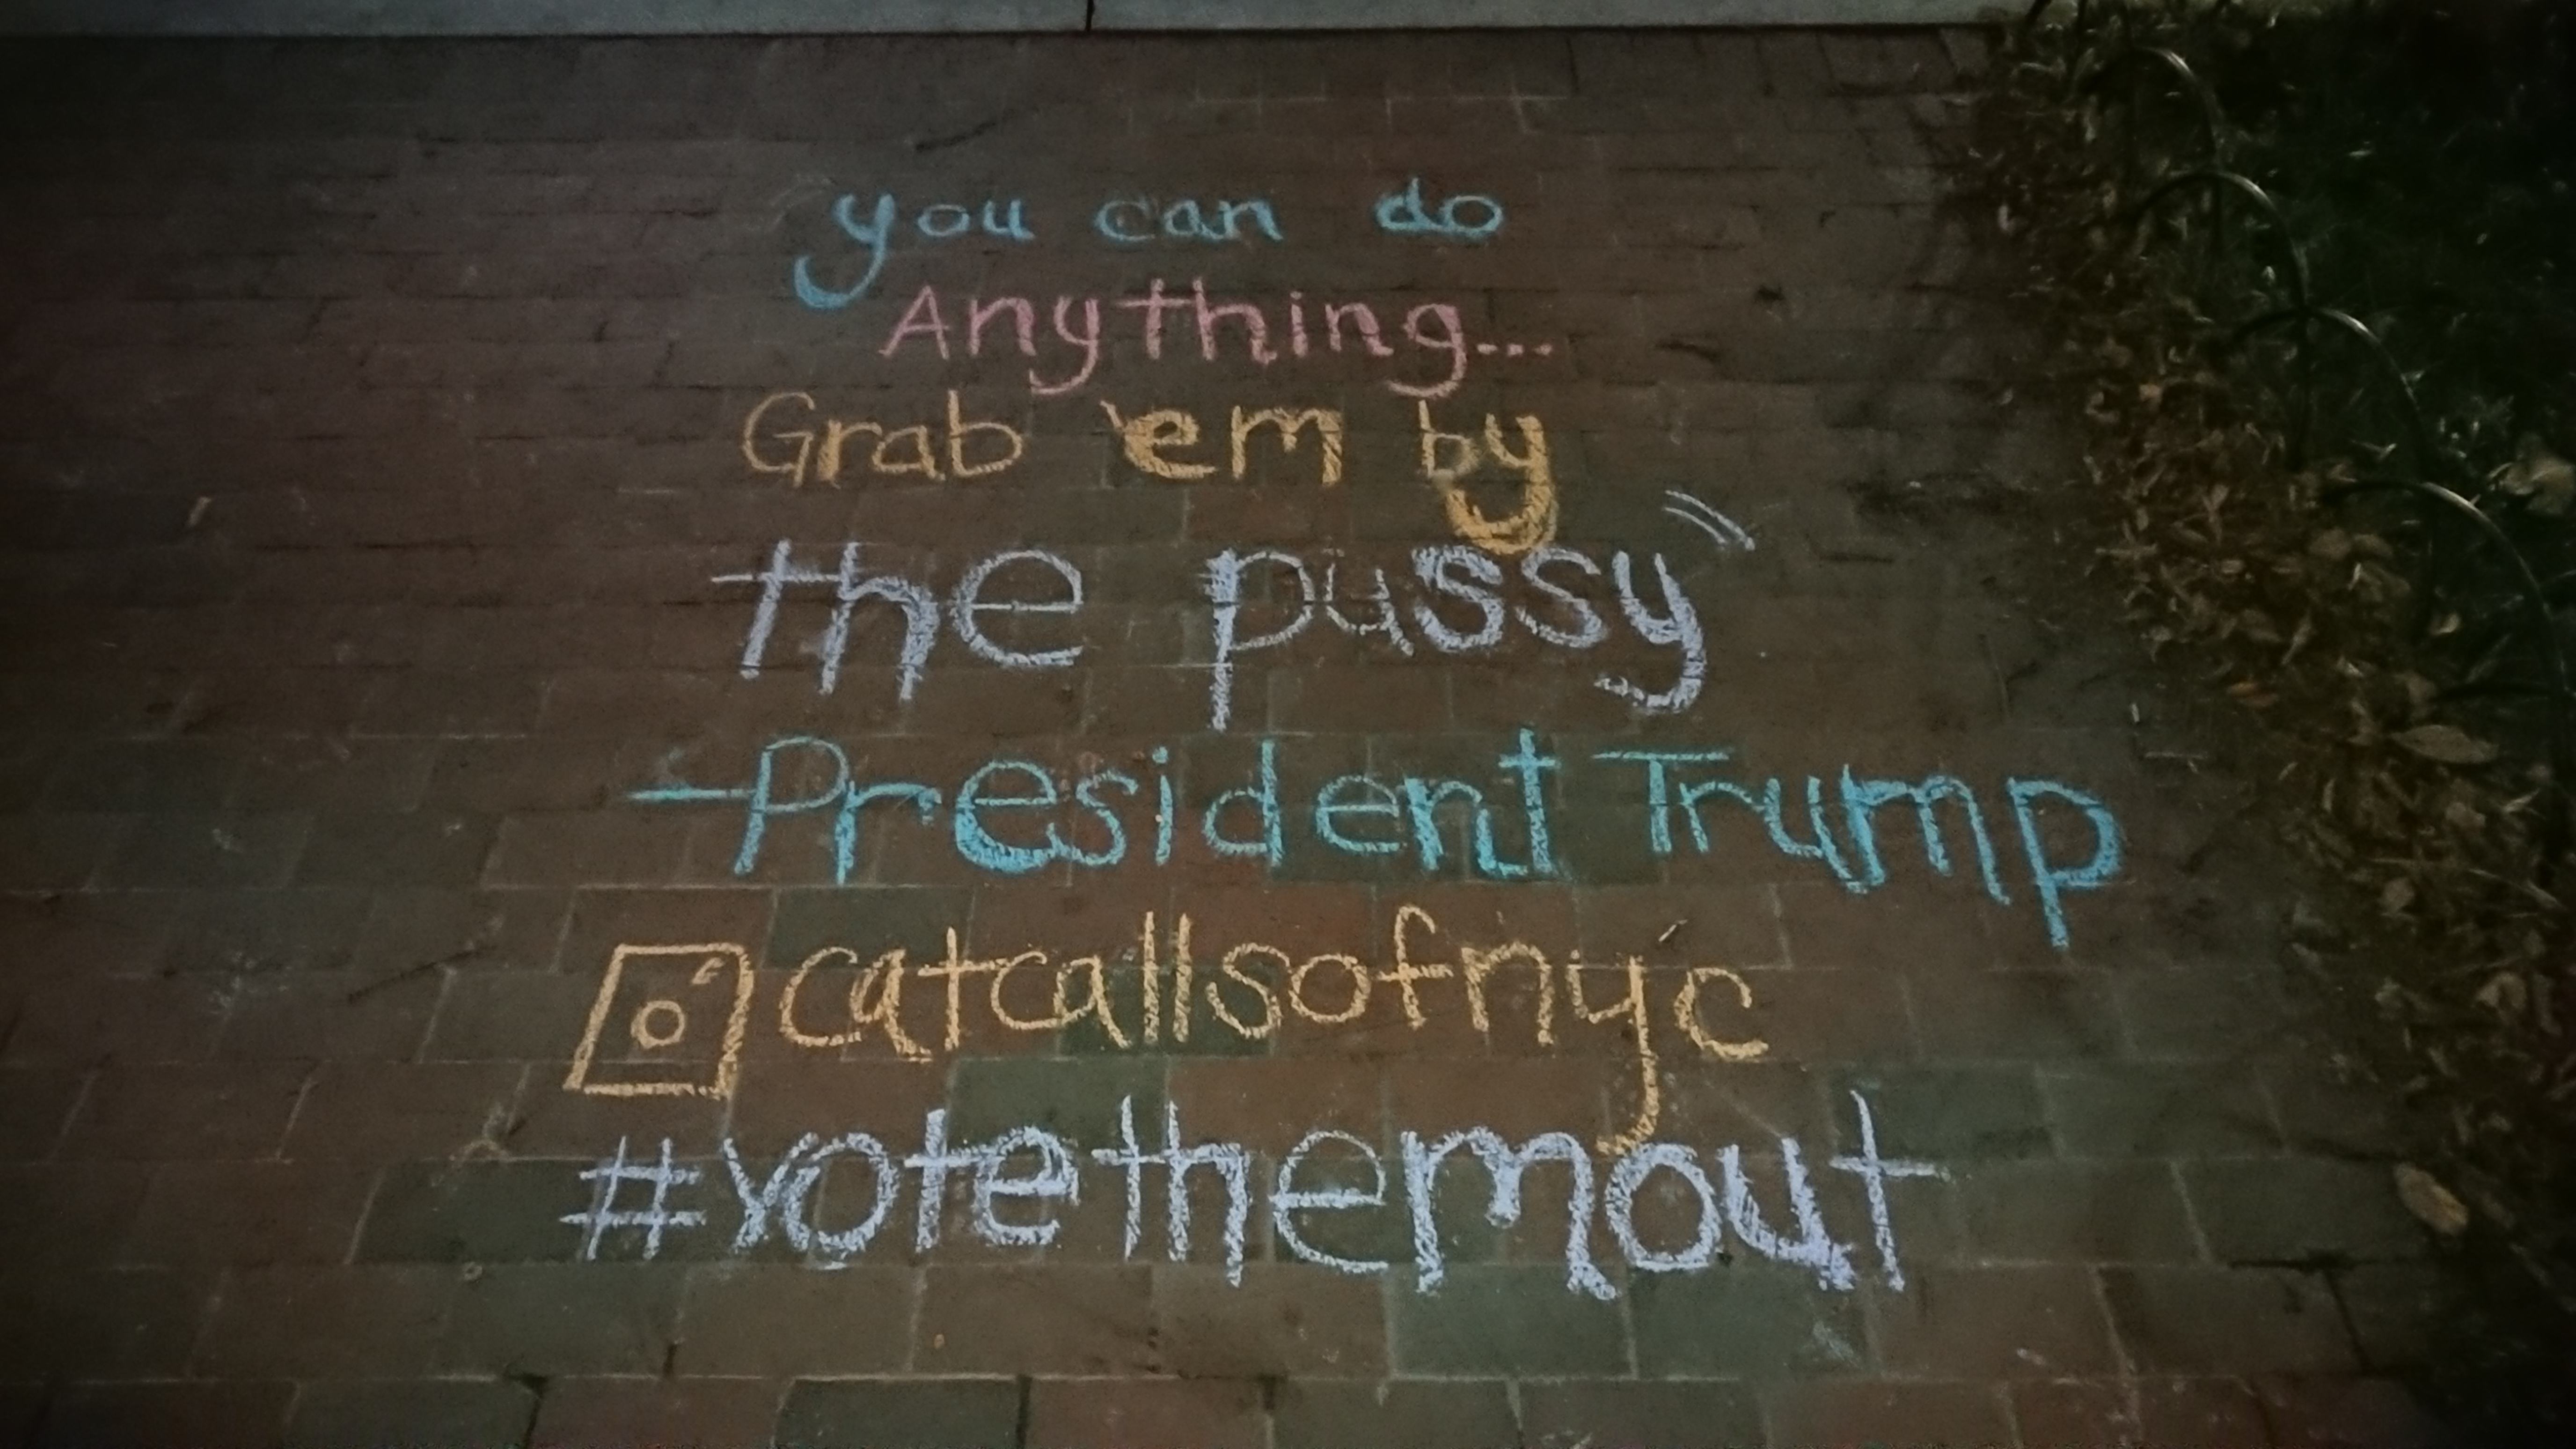 you can do
Anything...
Grab 'em by
the pussy"
-President Trump
catcallsofnyc
#votethemout